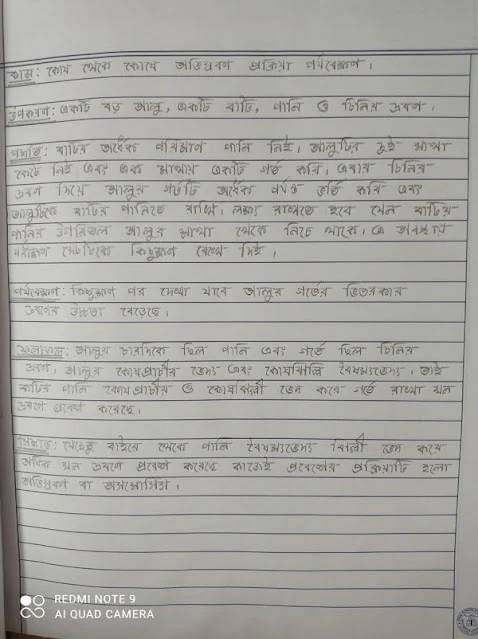 কাজ: কোষ থেকে কোষে অভিস্রবণ প্রক্রিয়া পর্যবেক্ষণ।
উপকরণ: একটি বড় আলু, একটি বাটি, পানি ও চিনির দ্রবণ।
পদ্ধতি: বাটির অর্ধেক পরিমাণ পানি নিই, আলুটির দুই মাথা
কেটে নিই এবং এক মাথায় একটি গর্ত করি, এবার চিনির
দ্রবণ দিয়ে আলুর গর্তটি অর্ধেক পর্যন্ত ভর্তি করি এবং
আলুটিকে বাটির পানিতে রাখি। লক্ষ্য রাখতে হবে যেন বাটির
পানির উপরিতল আলুর মাথা থেকে নিচে থাকে, এ অবস্থায়
পরীক্ষণ সেটটিকে কিছুক্ষণ রেখে দিই।
পর্যবেক্ষণ: কিছুক্ষণ পর দেখা যাবে আলুর গর্তের ভিতরকার
দ্রবণের উচ্চতা বেড়েছে।
ফলাফল: আলুর চারদিকে ছিল পানি এবং গর্তে ছিল চিনির
দ্রবণ, আলুর কোষপ্রাচীর ভেদ্য এবং কোষঝিল্লি বৈষম্যভেদ্য, তাই
বাটির পানি কোষপ্রাচীর ও কোষঝিল্লী ভেদ করে গর্তে রাখা ঘন
দ্রবণে প্রবেশ করেছে।
সিদ্ধান্ত: যেহেতু বাইরে থেকে পানি বৈষম্যভেদ্য ঝিল্লী ভেদ করে
অধিক ঘন দ্রবণে প্রবেশ করেছে কাজেই প্রবেশের প্রক্রিয়াটি হলো
অভিস্রবণ বা অসমোসিস।
REDMI NOTE 9
AI QUAD CAMERA